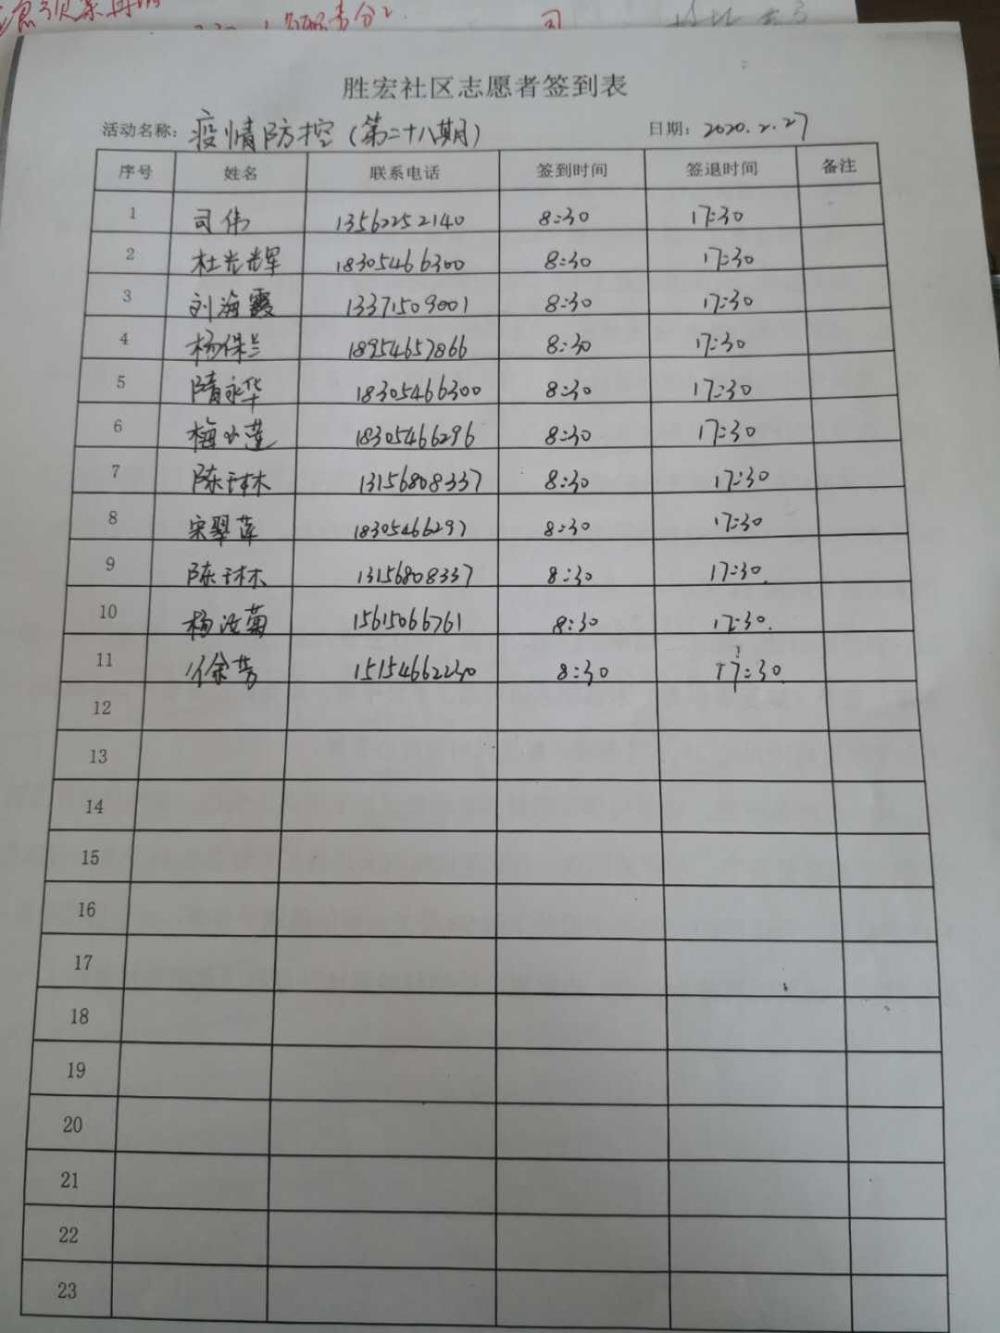 胜宏社区志愿者签到表
活动名称: 疫情防控（第二十八期） 日期: 2020.2.27
序号 姓名 联系电话 签到时间 签退时间 备注
1 司伟 13562252140 8:30 17:30
2 杜光辉 18305466300 8:30 17:30
3 刘海霞 13371509001 8:30 17:30
4 杨保兰 18954657866 8:30 17:30
5 隋永华 18305466300 8:30 17:30
6 梅小莲 18305466296 8:30 17:30
7 陈林 13156808337 8:30 17:30
8 宋翠莲 18305466297 8:30 17:30
9 陈林 13156808337 8:30 17:30
10 杨菊 15615066761 8:30 17:30
11 徐芳 15154662230 8:30 17:30
12
13
14
15
16
17
18
19
20
21
22
23